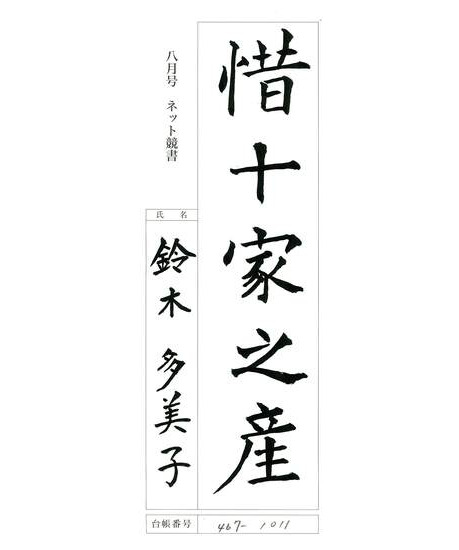 惜十家之産
八月号 ネット競書
氏名
鈴木 多美子
台帳番号 467-1011